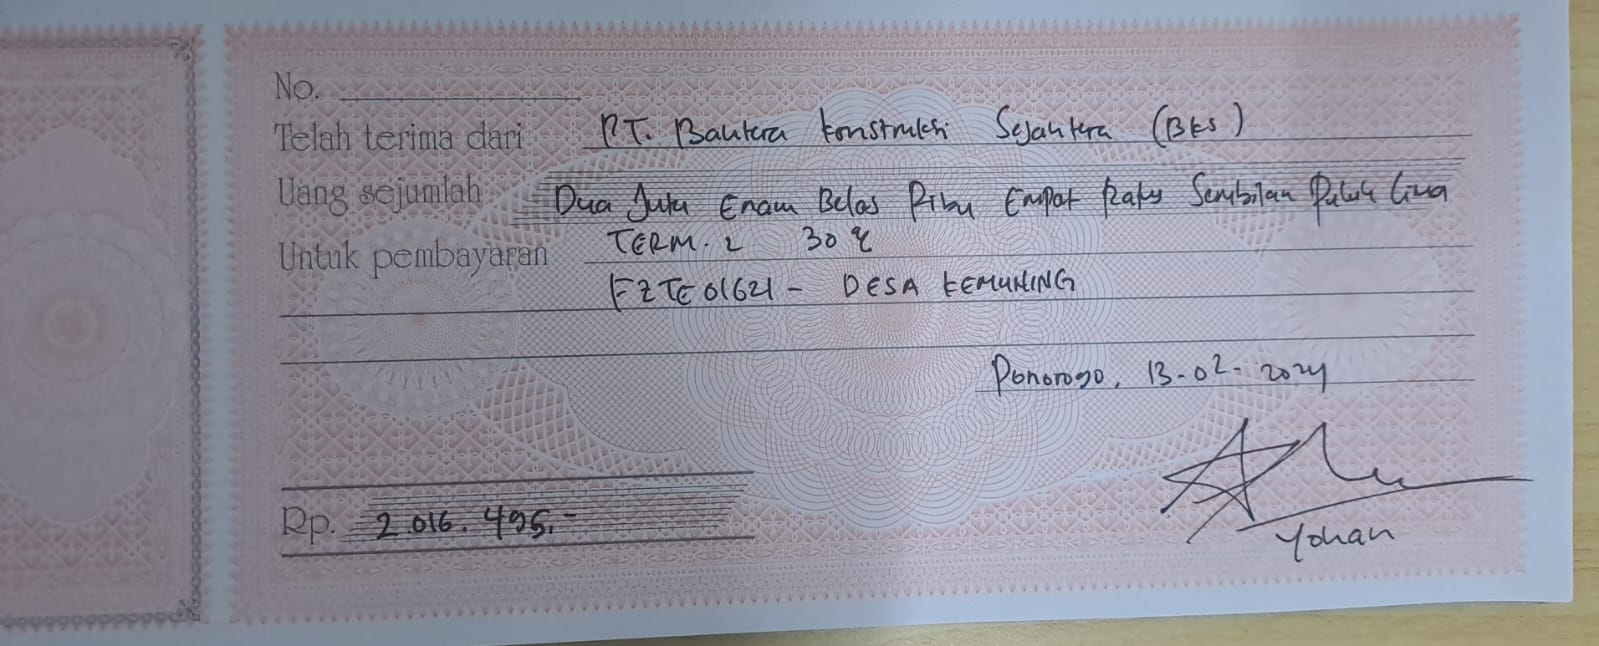 No.
Telah terima dari PT. Bahtera Konstruksi Sejahtera (BKS)
Uang sejumlah Dua Juta Enam Belas Ribu Empat Ratus Sembilan Puluh Lima
Untuk pembayaran TERM. 2 30 %
EZTE01621 - DESA KEMUNING
Ponorogo, 13-02-2024
Rp. 2.016.495,-
Yohan